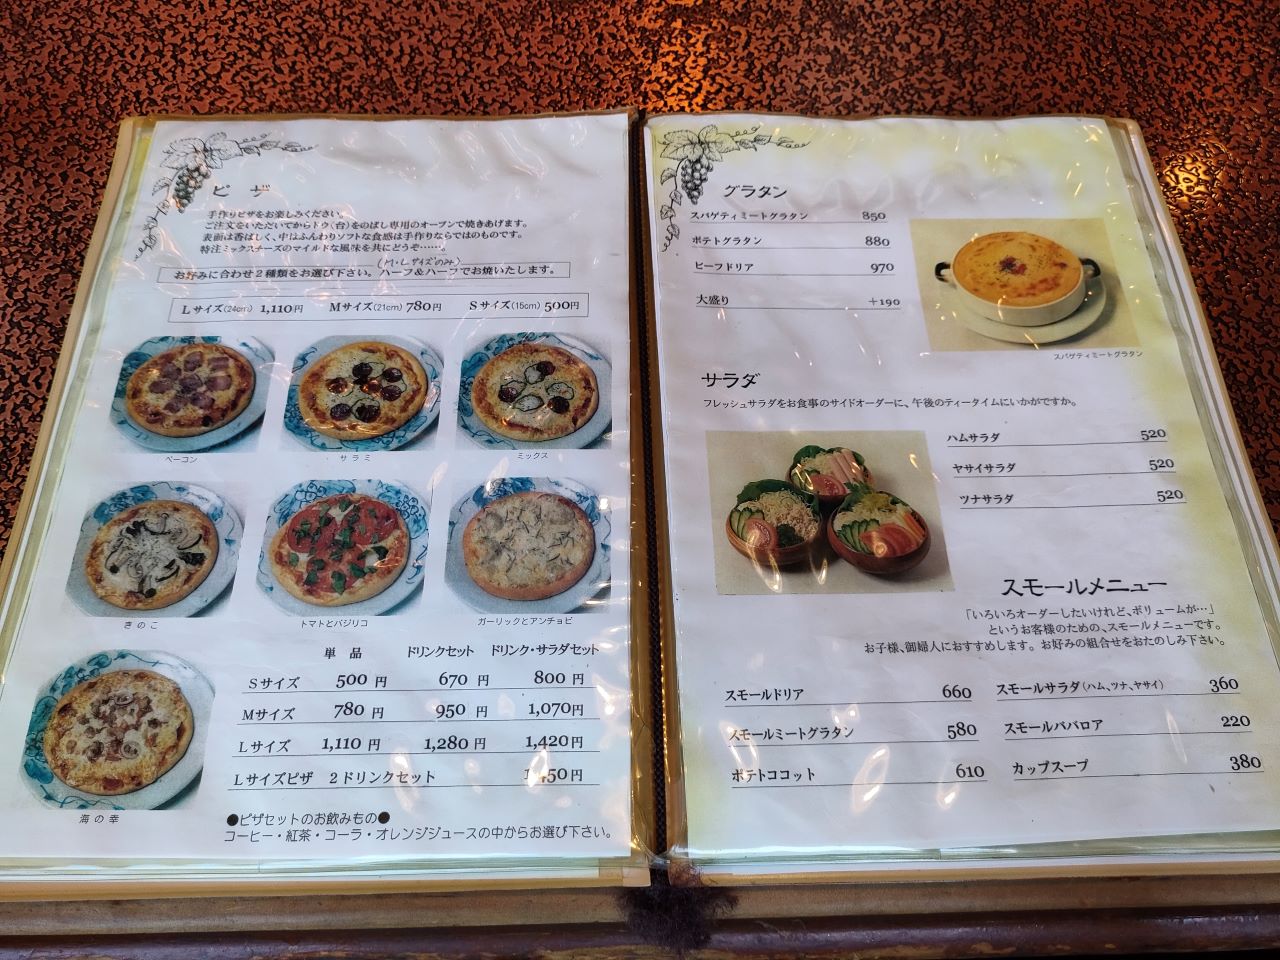 ピザ
手作りピザをお楽しみください。
ご注文をいただいてからドウ(台)をのばし専用のオーブンで焼きあげます。
表面は香ばしく、中はふんわりソフトな食感は手作りならではのものです。
特注ミックスチーズのマイルドな風味を共にどうぞ……。
(M・Lサイズのみ)
お好みに合わせ2種類をお選び下さい。ハーフ&ハーフでお焼いたします。
Lサイズ(24cm) 1,110円 Mサイズ(21cm) 780円 Sサイズ(15cm) 500円
ベーコン サラミ ミックス
きのこ トマトとバジリコ ガーリックとアンチョビ
海の幸
単品 ドリンクセット ドリンク・サラダセット
Sサイズ 500円 670円 800円
Mサイズ 780円 950円 1,070円
Lサイズ 1,110円 1,280円 1,420円
Lサイズピザ 2ドリンクセット 円
●ピザセットのお飲みもの●
コーヒー・紅茶・コーラ・オレンジジュースの中からお選び下さい。
グラタン
スパゲティミートグラタン 850
ポテトグラタン 880
ビーフドリア 970
大盛り +190
スパゲティミートグラタン
サラダ
フレッシュサラダをお食事のサイドオーダーに、午後のティータイムにいかがですか。
ハムサラダ 520
ヤサイサラダ 520
ツナサラダ 520
スモールメニュー
「いろいろオーダーしたいけれど、ボリュームが…」
というお客様のための、スモールメニューです。
お子様、御婦人におすすめします。お好みの組合せをおたのしみ下さい。
スモールドリア 660
スモールミートグラタン 580
ポテトココット 610
スモールサラダ(ハム、ツナ、ヤサイ) 360
スモールババロア 220
カップスープ 380